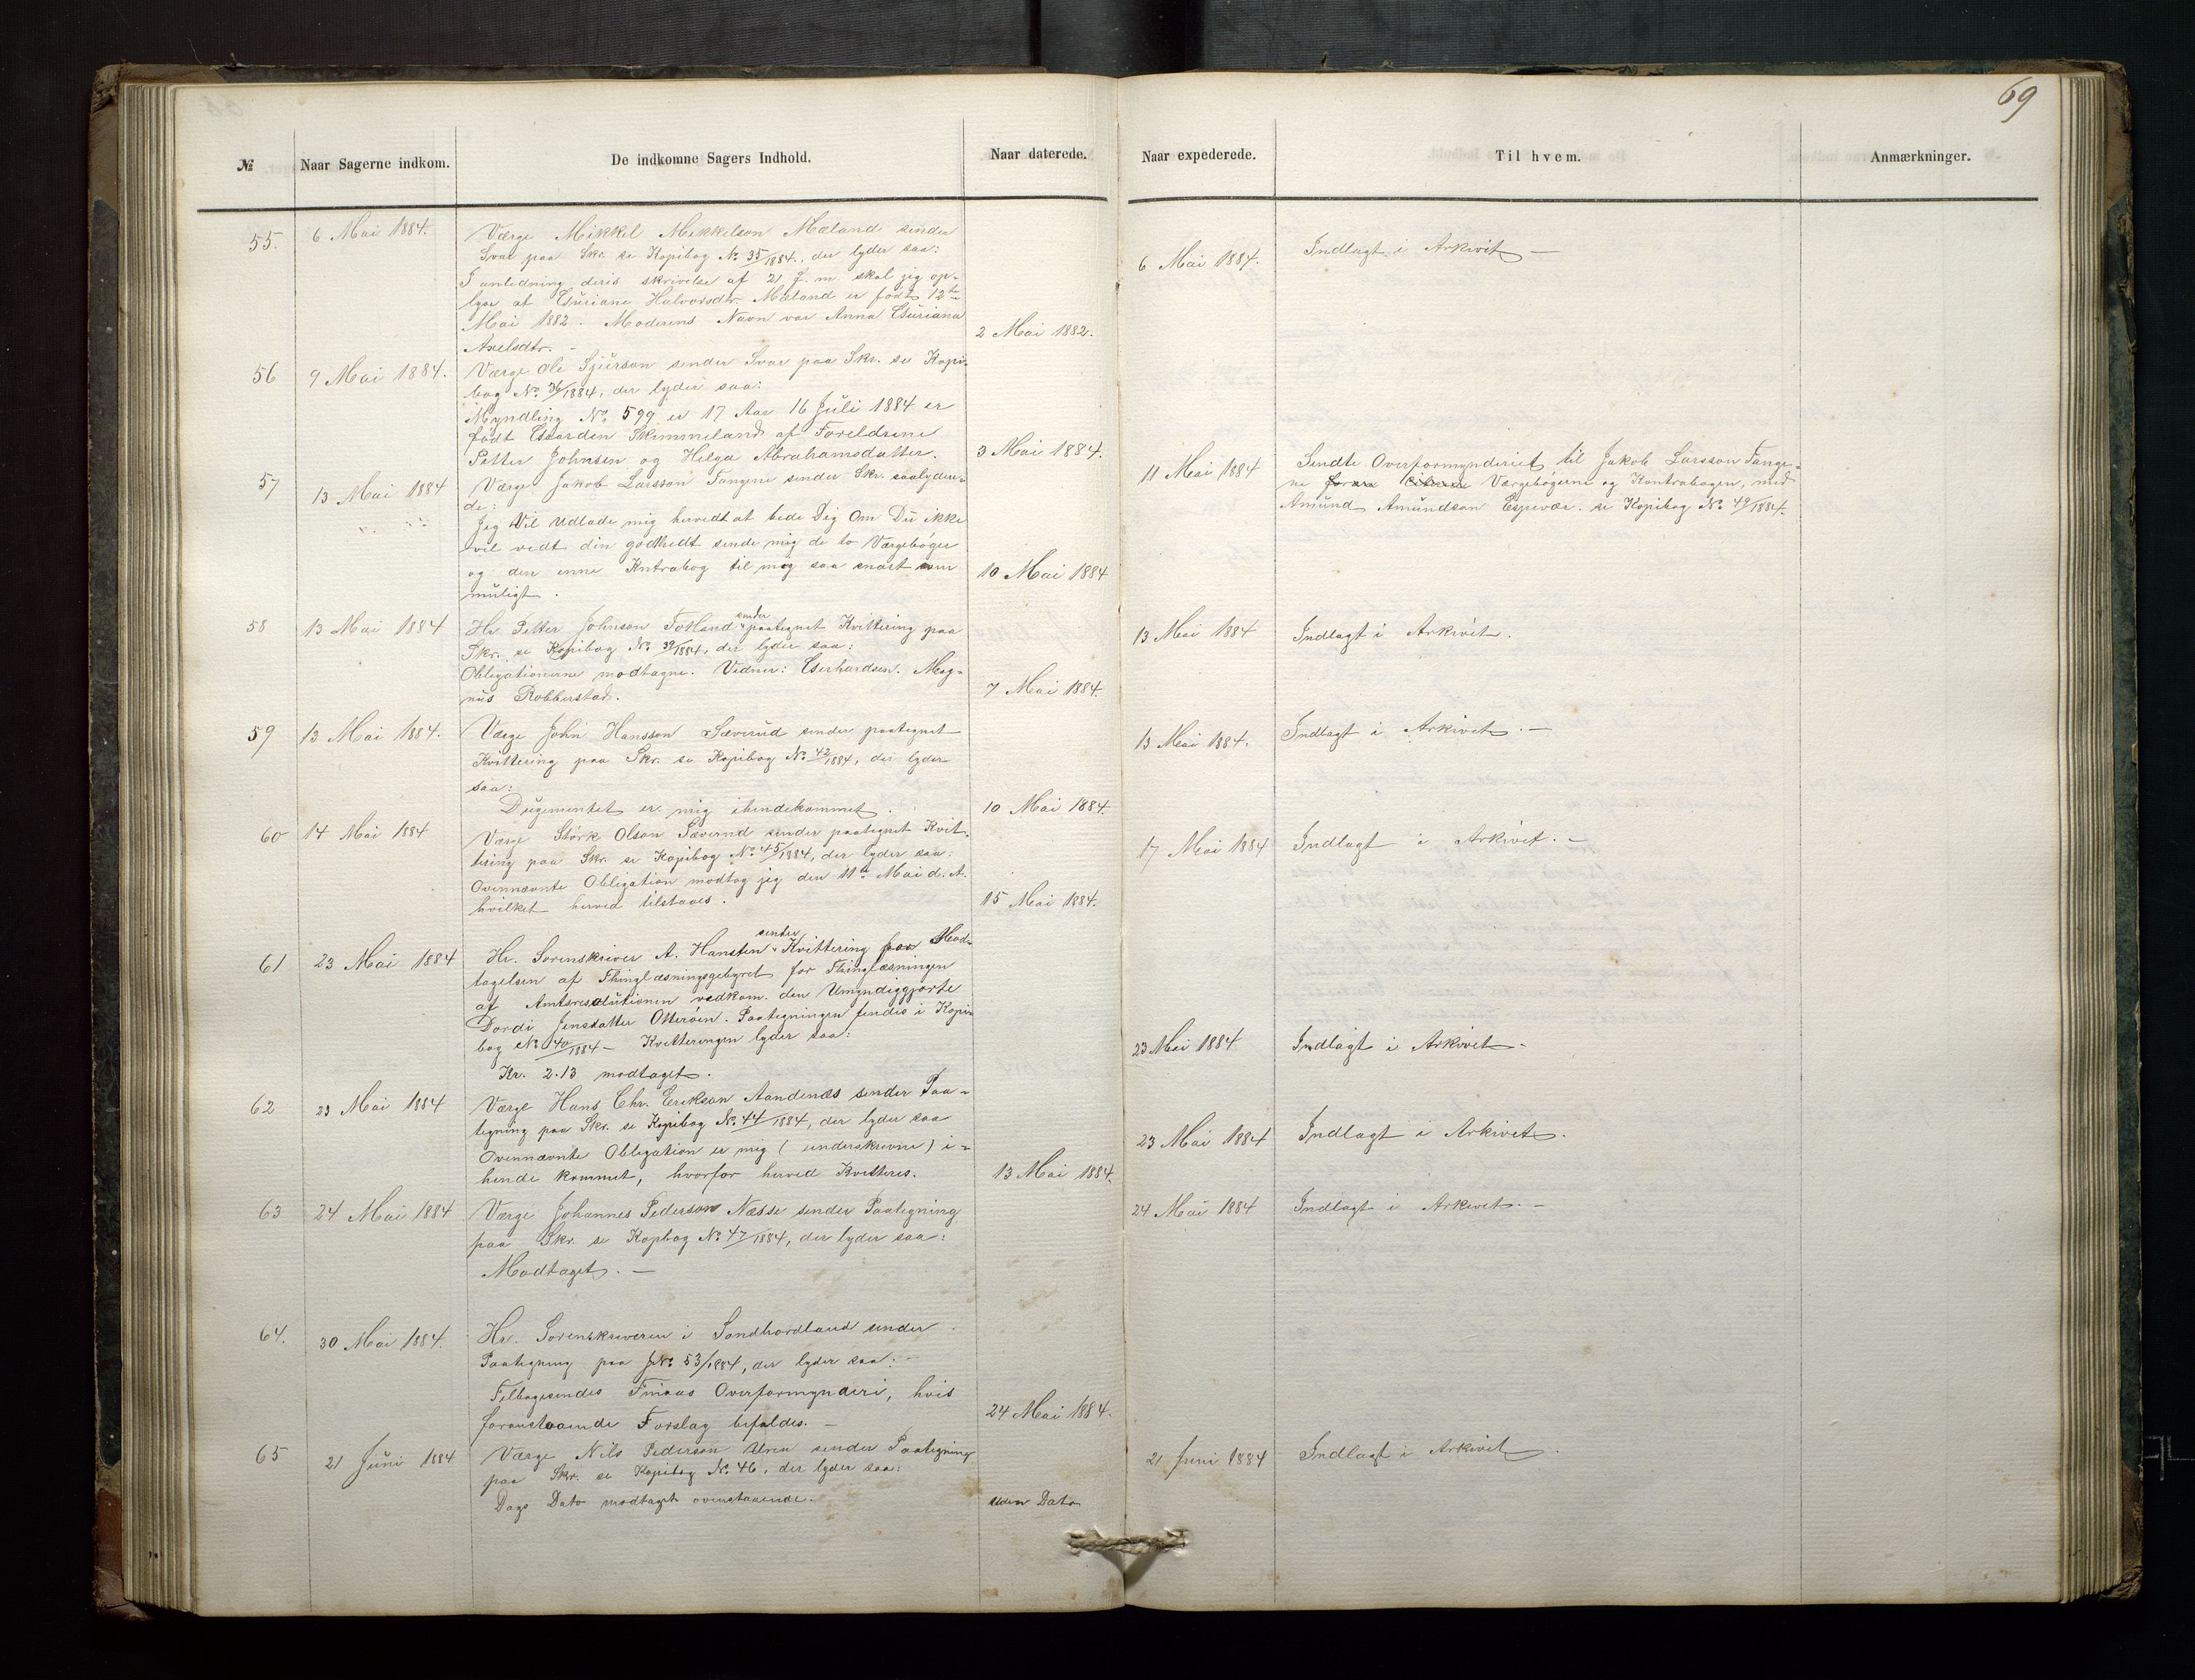 69
№ Naar Sagerne indkom. De indkomne Sagers Indhold. Naar daterede. Naar expederede. Til hvem. Anmærkninger.
55. 6 Mai 1884. Værge Mikkel Mikkelson Mæland sender
Svar paa Skr. se Kopibog No 35/1884., der lyder saa:
I anledning deris skrivelse af 21 f. m. skal jeg op-
lyse at Guriane Halvorsdtr. Mæland er født 12te
Mai 1882. Moderens Navn var Anna Guriana
Axelsdtr. –
2 Mai 1882.
6 Mai 1884. Indlagt i Arkivet –
56 9 Mai 1884. Værge Ole Sjurson sender Svar paa Skr. se Kopi-
bog No. 36/1884, der lyder saa:
Myndling No. 599 er 17 Aar 16 Juli 1884 er
født Gaarden Skimmeland af Foreldrene
Petter Johnsen og Helga Abrahamsdatter.
3 Mai 1884.
57 13 Mai 1884 Værge Jakob Larsson Tangene sender Skr. saalyden-
de:
Jeg Vil Udlade mig hervedt at bede Dig Om Du ikke
vil vedt din godhedt sende mig de to Værgebøger
og den enne Kntrabog til mig saa snart som
muligt.
10 Mai 1884
11 Mai 1884 Sendte Overformynderiet til Jakob Larsson Tange-
ne Værgebøgerne og Kontrabogen, med
Amund Amundson Espevær. se Kopibog No 49/1884.
58 13 Mai 1884 Hr Petter Johnson Totland sender paategnet Kvittering paa
Skr. se Kopibog No. 39/1884, der lyder saa:
Obligationerne modtagne. Vidner: Gerhardsen. Mag-
nus Robberstad.
7 Mai 1884.
13 Mai 1884 Indlagt i Arkivet.
59 13 Mai 1884. Værge John Hansson Sæverud sender paategnet
Kvittering paa Skr. se Kopibog No. 42/1884, der lyder
saa:
Dugementet er mig ihendekommet.
10 Mai 1884.
13 Mai 1884. Indlagt i Arkivet. –
60 14 Mai 1884 Værge Størk Olson Sæverud sender paategnet Kvit-
tering paa Skr. se Kopibog No. 45/1884, der lyder saa:
Ovennævnte Obligation modtog jeg den 11te Mai d. A.
hvilket herved tilstaaes.
15 Mai 1884.
17 Mai 1884 Indlagt i Arkivet. –
61 23 Mai 1884 Hr. Sorenskriver A. Hansten sender Kvittering for Mod-
tagelsen af Thinglæsningsgebyret for Thinglæsningen
af Amtsresolutionen vedkom. den Umyndiggjorte
Dordi Jensdatter Otterøen. Paategningen fendes i Kopi-
bog No 40/1884 – Kvitteringen lyder saa:
Kr. 2.13 modtaget.
23 Mai 1884 Indlagt i Arkivet –
62 23 Mai 1884 Værge Hans Chr. Erikson Aandenæs sender Paa-
tegning paa Skr. se Kopibog No. 44/1884, der lyder saa
Ovennævnte Obligation er mig (underskrevne) i-
hende kommet, hvorfor herved Kvitteres.
13 Mai 1884.
23 Mai 1884 Indlagt i Arkivet.
63 24 Mai 1884 Værge Johannes Pederson Næsse sender Paategning
paa Skr. se Kopbog No. 47/1884, der lyder saa:
Modtaget. –
24 Mai 1884 Indlagt i Arkivet. –
64. 30 Mai 1884. Hr. Sorenskriveren i Søndhordland sender
Paategning paa J.No. 53/1884, der lyder saa: –
Tilbagesendes Finaas Overformynderi, hvis
foranstaaende Forslag befaldes. –
24 Mai 1884.
65 21 Juni 1884 Værge Nils Pederson Uren sender Paategning
paa Skr. se Kopibog No. 46, der lyder saa:
Dags Dato modtaget ovenstaaende.
uden Dato
21 Juni 1884 Indlagt i Arkivet.